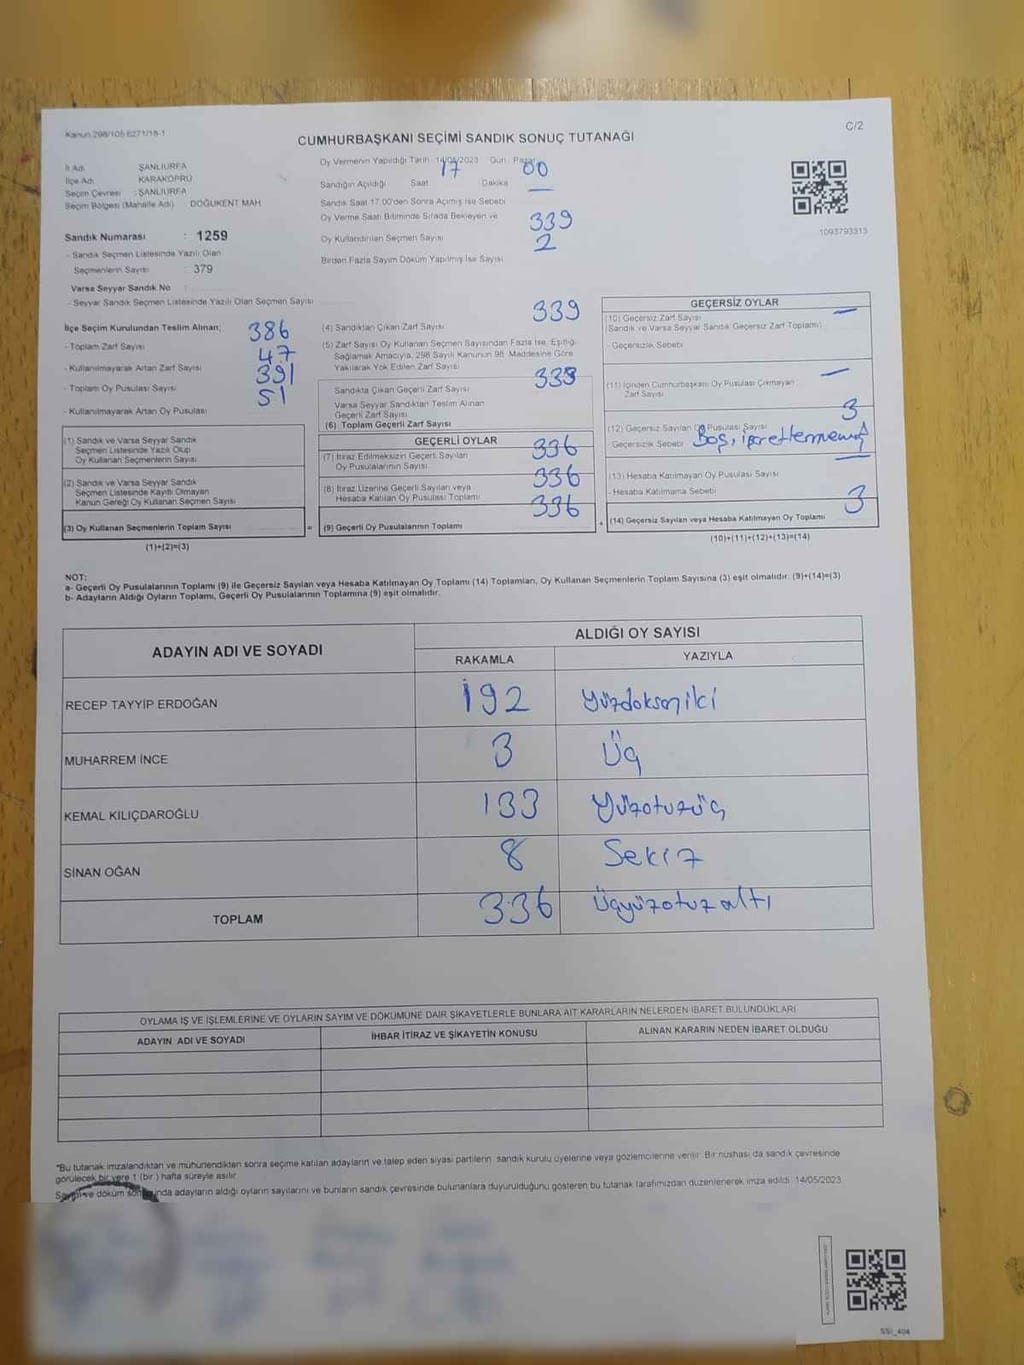 Kanun 298/105 6271/18-1
C/2
CUMHURBAŞKANI SEÇİMİ SANDIK SONUÇ TUTANAĞI
İl Adı : ŞANLIURFA
İlçe Adı : KARAKÖPRÜ
Seçim Çevresi : ŞANLIURFA
Seçim Bölgesi (Mahalle Adı) : DOĞUKENT MAH
Sandık Numarası : 1259
- Sandık Seçmen Listesinde Yazılı Olan
Seçmenlerin Sayısı : 379
Varsa Seyyar Sandık No
- Seyyar Sandık Seçmen Listesinde Yazılı Olan Seçmen Sayısı
Oy Vermenin Yapıldığı Tarih 14/05/2023 Gün: Pazar
Sandığın Açıldığı Saat 17 Dakika 00
Sandık Saat 17:00'den Sonra Açılmış İse Sebebi —
Oy Verme Saati Bitiminde Sırada Bekleyen ve
Oy Kullandırılan Seçmen Sayısı 339
Birden Fazla Sayım Döküm Yapılmış İse Sayısı 2
1093793313
İlçe Seçim Kurulundan Teslim Alınan;
- Toplam Zarf Sayısı 386
- Kullanılmayarak Artan Zarf Sayısı 47
- Toplam Oy Pusulası Sayısı 391
- Kullanılmayarak Artan Oy Pusulası 51
(1) Sandık ve Varsa Seyyar Sandık
Seçmen Listesinde Yazılı Olup
Oy Kullanan Seçmenlerin Sayısı
(2) Sandık ve Varsa Seyyar Sandık
Seçmen Listesinde Kayıtlı Olmayan
Kanun Gereği Oy Kullanan Seçmen Sayısı
(3) Oy Kullanan Seçmenlerin Toplam Sayısı
(1)+(2)=(3)
=
(4) Sandıktan Çıkan Zarf Sayısı 339
(5) Zarf Sayısı Oy Kullanan Seçmen Sayısından Fazla İse, Eşitliği
Sağlamak Amacıyla, 298 Sayılı Kanunun 98. Maddesine Göre
Yakılarak Yok Edilen Zarf Sayısı
Sandıkta Çıkan Geçerli Zarf Sayısı 339
Varsa Seyyar Sandıktan Teslim Alınan
Geçerli Zarf Sayısı
(6) Toplam Geçerli Zarf Sayısı
GEÇERLİ OYLAR
(7) İtiraz Edilmeksizin Geçerli Sayılan
Oy Pusulalarının Sayısı 336
(8) İtiraz Üzerine Geçerli Sayılan veya
Hesaba Katılan Oy Pusulası Toplamı 336
(9) Geçerli Oy Pusulalarının Toplamı 336
+
GEÇERSİZ OYLAR
(10) Geçersiz Zarf Sayısı —
(Sandık ve Varsa Seyyar Sandık Geçersiz Zarf Toplamı)
- Geçersizlik Sebebi
(11) İçinden Cumhurbaşkanı Oy Pusulası Çıkmayan —
Zarf Sayısı
(12) Geçersiz Sayılan Oy Pusulası Sayısı 3
- Geçersizlik Sebebi Boş, işaretlenmemiş
(13) Hesaba Katılmayan Oy Pusulası Sayısı —
- Hesaba Katılmama Sebebi
(14) Geçersiz Sayılan veya Hesaba Katılmayan Oy Toplamı 3
(10)+(11)+(12)+(13)=(14)
NOT:
a- Geçerli Oy Pusulalarının Toplamı (9) ile Geçersiz Sayılan veya Hesaba Katılmayan Oy Toplamı (14) Toplamları, Oy Kullanan Seçmenlerin Toplam Sayısına (3) eşit olmalıdır. (9)+(14)=(3)
b- Adayların Aldığı Oyların Toplamı, Geçerli Oy Pusulalarının Toplamına (9) eşit olmalıdır.
ADAYIN ADI VE SOYADI
ALDIĞI OY SAYISI
RAKAMLA YAZIYLA
RECEP TAYYİP ERDOĞAN 192 Yüzdoksaniki
MUHARREM İNCE 3 Üç
KEMAL KILIÇDAROĞLU 133 Yüzotuzüç
SİNAN OĞAN 8 Sekiz
TOPLAM 336 Üçyüzotuzaltı
OYLAMA İŞ VE İŞLEMLERİNE VE OYLARIN SAYIM VE DÖKÜMÜNE DAİR ŞİKAYETLERLE BUNLARA AİT KARARLARIN NELERDEN İBARET BULUNDUKLARI
ADAYIN ADI VE SOYADI İHBAR İTİRAZ VE ŞİKAYETİN KONUSU ALINAN KARARIN NEDEN İBARET OLDUĞU
*Bu tutanak imzalandıktan ve mühürlendikten sonra seçime katılan adayların ve talep eden siyasi partilerin sandık kurulu üyelerine veya gözlemcilerine verilir. Bir nüshası da sandık çevresinde
görülecek bir yere 1 (bir) hafta süreyle asılır.
Sayım ve döküm sonunda adayların aldığı oyların sayılarını ve bunların sandık çevresinde bulunanlara duyurulduğunu gösteren bu tutanak tarafımızdan düzenlenerek imza edildi. 14/05/2023
SSİ_404